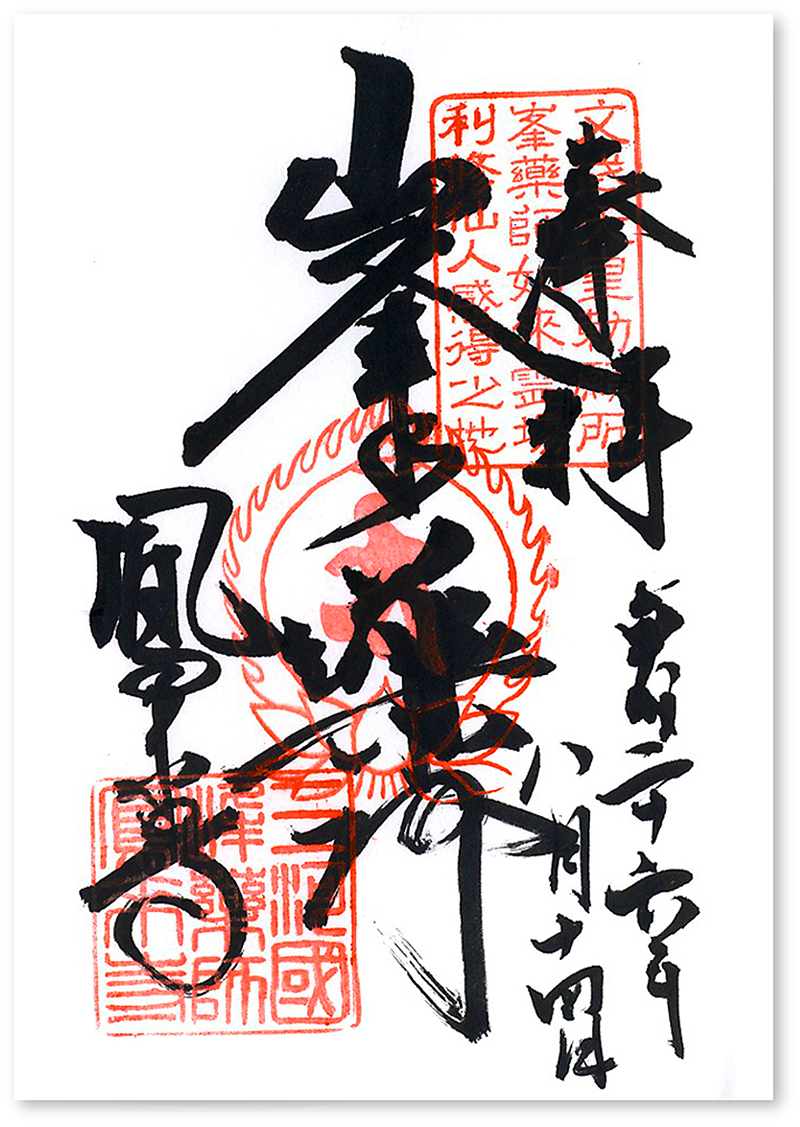 奉拝
文武天皇勅願所
峯藥師如來霊場
利修仙人感得之地
平成二十六年
八月十四日
峯の薬師
鳳来寺
三河國
峯藥師
鳳来寺